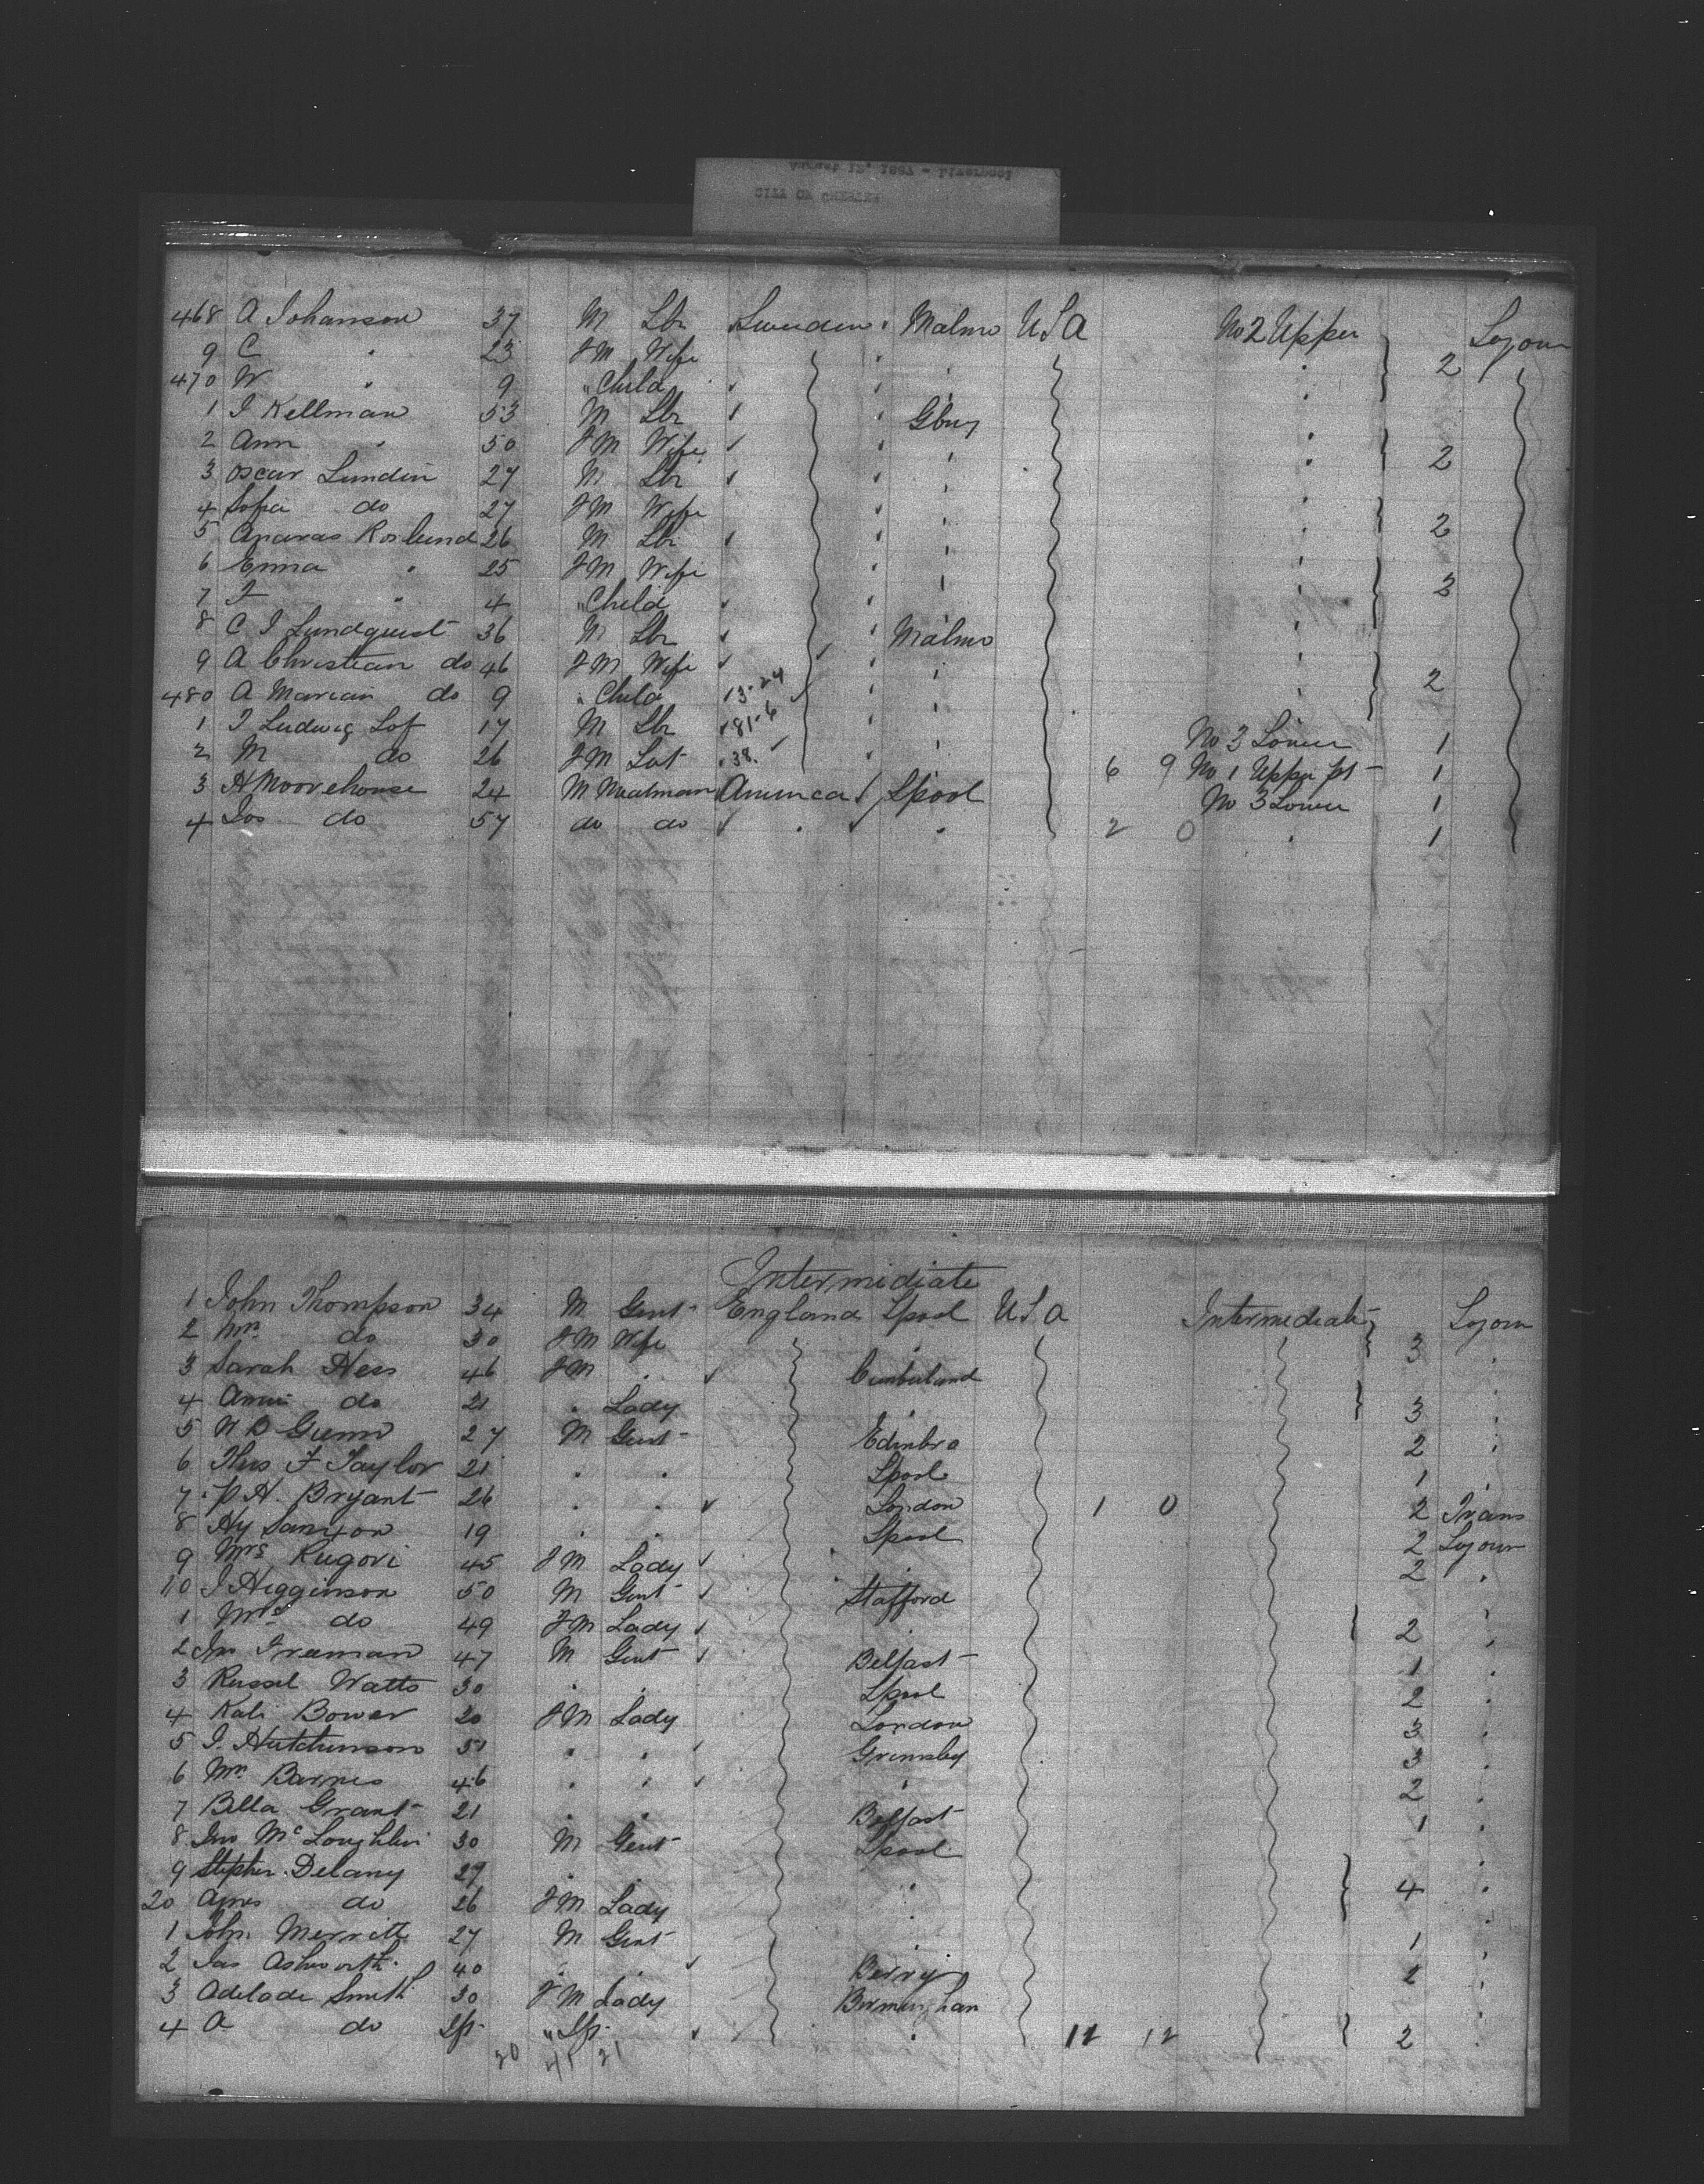 CITY OF CHESTER
468 A Johanson 37 M Lbr Sweden Malmo U S A No 2 Upper Sojour
9 C " 23 FM Wife " " 2
470 W " 9 " Child " "
1 J Kellman 53 M Lbr Gburg "
2 Ann " 50 FM Wife " " 2
3 Oscar Lundin 27 M Lbr " "
4 Sofia do 27 FM Wife " " 2
5 Andras Roslund 26 M Lbr " "
6 Emma " 25 FM Wife " " 3
7 F " 4 " Child " "
8 C J Lundquist 36 M Lbr Malmo "
9 A Christian do 46 FM Wife " " 2
480 A Marian do 9 " Child 13-24 " "
1 J Ludwig Lof 17 M Lbr 81-6 " No 3 Lower 1
2 M do 26 FM Lat 38. " 6 9 No 1 Upper pt 1
3 H Moorehouse 24 M America Lpool No 3 Lower 1
4 Jos do 57 do do " " 2 0 " 1
Intermediate
1 John Thompson 34 M Gent England Lpool U S A Intermediate Sojour
2 Mrs do 30 FM Wife " 3 "
3 Sarah Hees 46 FM " Cumberland "
4 Annie do 21 " Lady " 3 "
5 N B Gunn 27 M Gent Edinbro 2 "
6 Thos F Taylor 21 " " Lpool 1 "
7 P H. Bryant 26 " " London 1 0 2 Trans
8 Hy Sanxon 19 " " Lpool 2 Sojour
9 Mrs Rugori 45 FM Lady " 2 "
10 J Higginson 50 M Gent Stafford "
1 Mrs do 49 FM Lady " 2 "
2 Jno Freeman 47 M Gent Belfast 1 "
3 Russel Watts 30 " " Lpool 2 "
4 Kate Bower 20 FM Lady London 3 "
5 J. Hutchinson 51 " " Grimsby 3 "
6 Mrs Barnes 46 " " " 2 "
7 Bella Grant 21 " " Belfast 1 "
8 Jno McLoughlin 30 M Gent Lpool
9 Stephen Delany 29 " " " 4 "
20 Agnes do 26 FM Lady " "
1 John Merritt 27 M Gent " 1 "
2 Jas Ashworth 40 " " 2 "
3 Adelade Smith 30 FM Lady Birmingham "
4 A do Ift " Ift " 11 12 2 "
20 45 21